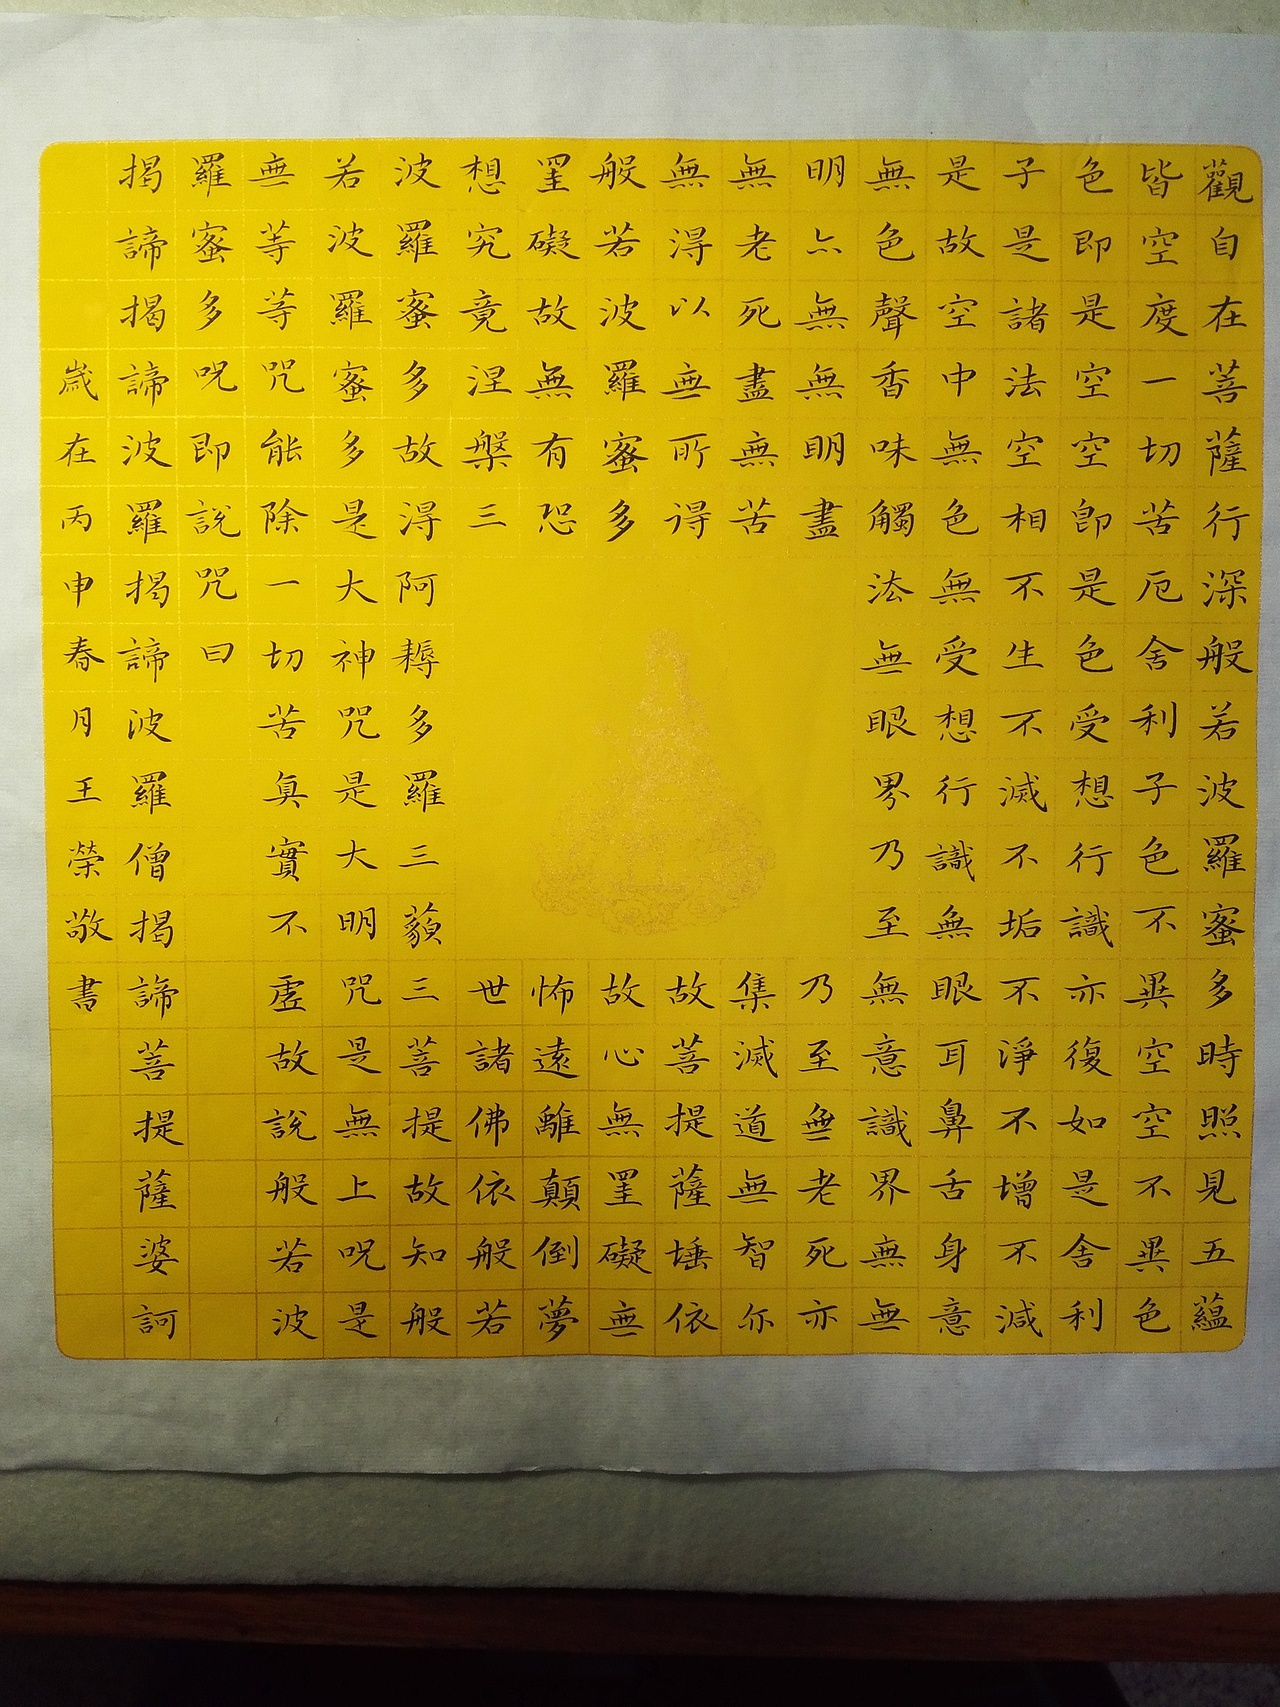 觀自在菩薩行深般若波羅蜜多時照見五蘊
皆空度一切苦厄舍利子色不異空空不異色
色即是空空即是色受想行識亦復如是舍利
子是諸法空相不生不滅不垢不淨不增不減
是故空中無色無受想行識無眼耳鼻舌身意
無色聲香味觸法無眼界乃至無意識界無無
明亦無無明盡乃至無老死亦
無老死盡無苦集滅道無智亦
無得以無所得故菩提薩埵依
般若波羅蜜多故心無罣礙無
罣礙故無有恐怖遠離顛倒夢
想究竟涅槃三世諸佛依般若
波羅蜜多故得阿耨多羅三藐三菩提故知般
若波羅蜜多是大神咒是大明咒是無上呪是
無等等咒能除一切苦真實不虛故說般若波
羅蜜多呪即說咒曰
揭諦揭諦波羅揭諦波羅僧揭諦菩提薩婆訶
歲在丙申春月王榮敬書